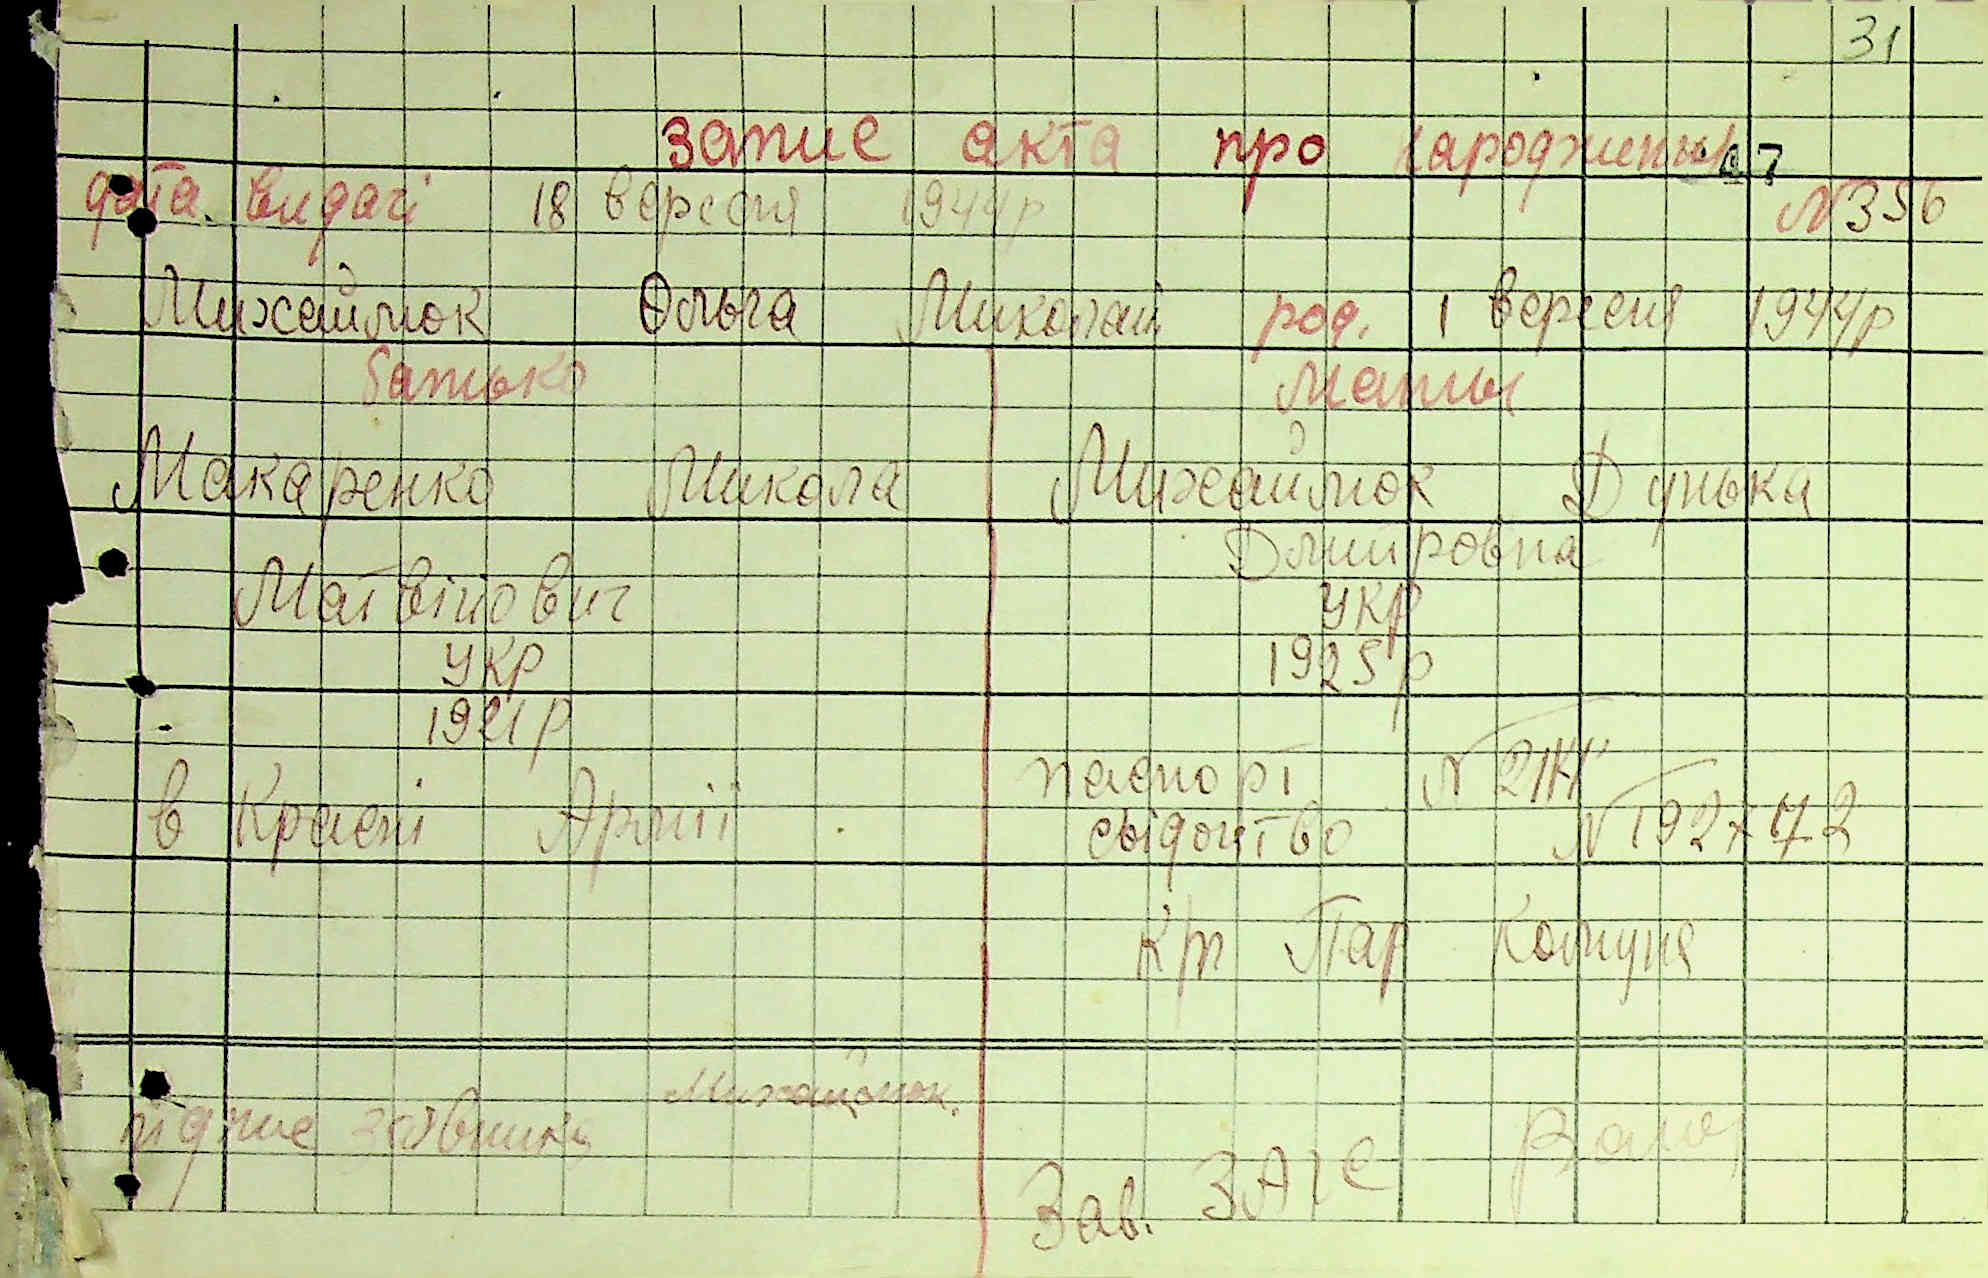 31
запис акта про народжены
дата видачі 18 вересня 1944р N 356
Михайлюк Ольга Миколаи род. 1 вересня 1944р
батько маты
Макаренко Микола
Матвійович
укр
1921р
в Красні Армії
Михайлюк Дунька
Дмитровна
укр
1925р
паспорт N
свідоцтво N
к/т Пар Комуна
підпис заявника Михайлюк.
Зав. ЗАГС